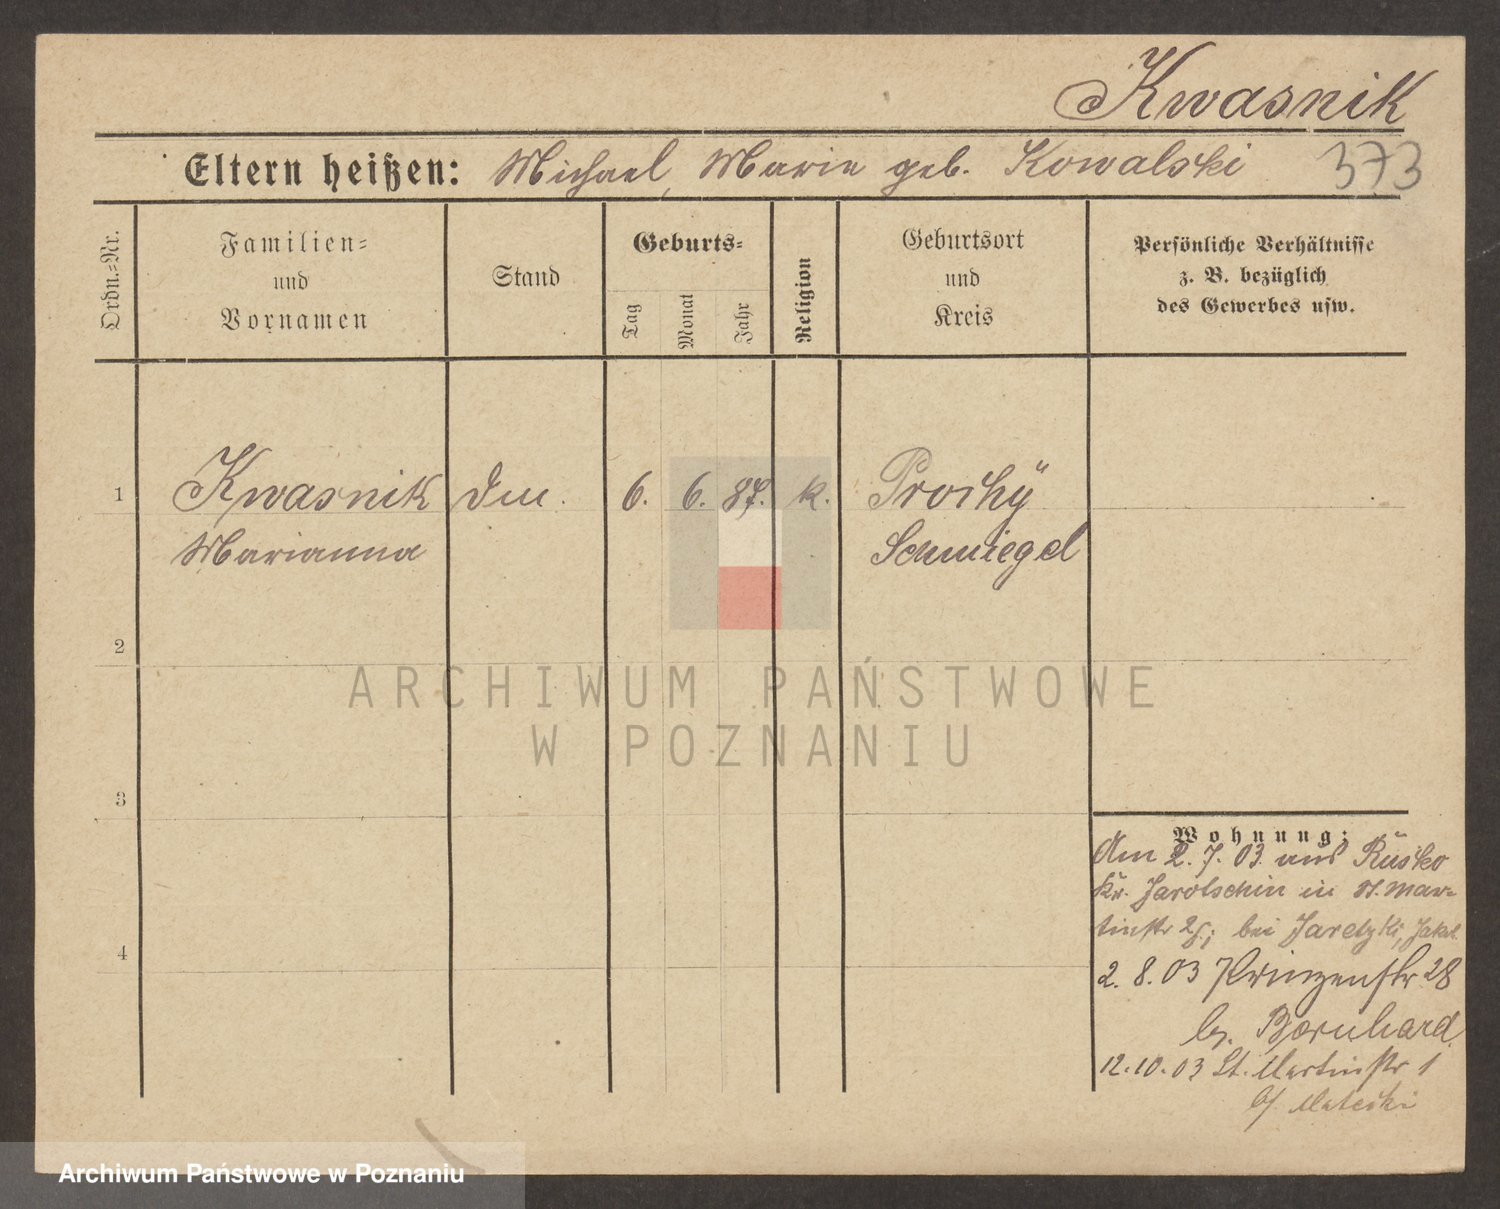 Kwasnik
Eltern heißen: Michael, Marie geb. Kowalski 373
Ordn.=Nr.
Familien=
und
Vornamen
Stand
Geburts=
Tag
Monat
Jahr
Religion
Geburtsort
und
Kreis
Persönliche Verhältnisse
z. B. bezüglich
des Gewerbes usw.
1 Kwasnik 6. 6. 87. k. Prochÿ
Marianna Schmiegel
2
3
4
Wohnung:
Am 2. 7. 03 aus Rusko
Kr. Jarotschin in St. Mar=
tinstr bei
2. 8. 03 Prinzenstr 28
b. Bernhard
12.10.03 St. Martinstr 1
b/
ARCHIWUM PAŃSTWOWE
W POZNANIU
Archiwum Państwowe w Poznaniu